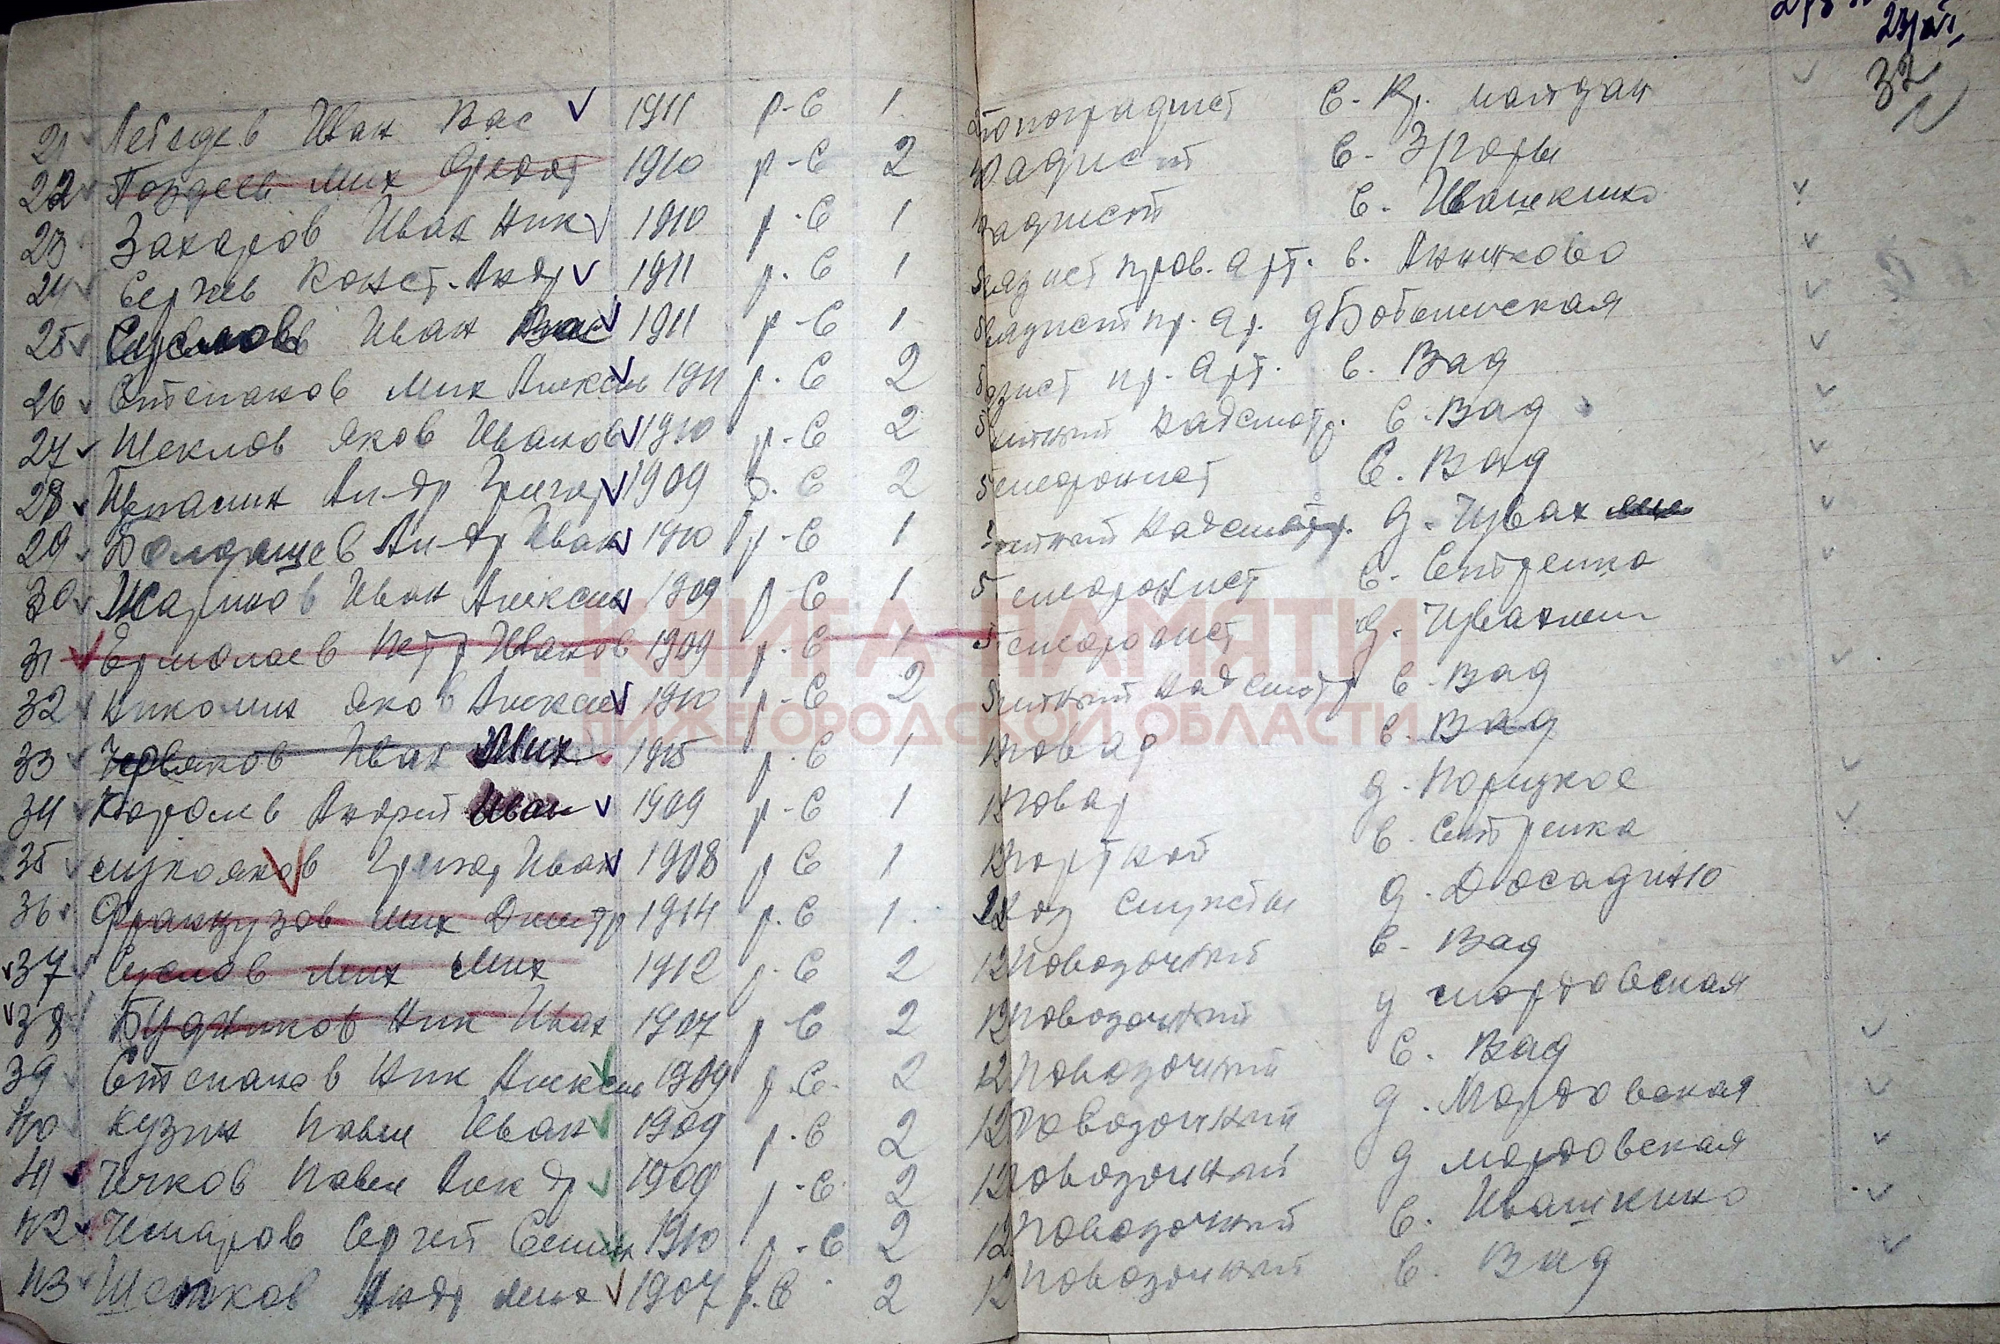 23/VI,
32
21 Лебедев Иван Вас 1911 р-С 1 топографист С. Кр. майдан
22 Поздеев Мих Федот 1910 р-С 2 радист С. Згоры
23 Захаров Иван Ник 1910 р-С 1 радист С. Ивашкино
24 Сергеев Конст. Андр 1911 р.С 1 радист пров. арт. с. Анненково
25 Суслов Иван Вас 1911 р-С 1 радист пр. Ар. д Бобылевская
26 Степанов Мих Алексе 1911 р.С 2 пр. Арт. с. Вад
27 Щеклов Яков Иванов 1910 р-С 2 надсмотр. С. Вад
28 Ипалин Андр Григор 1909 р.С 2 телефонист С. Вад
29 Болдашев Андр Иван 1910 р-С 1 надсмотр. д. Чуварлеи
30 Жарков Иван Алексеев 1909 р-С 1 телефонист С. Стрелка
31 Ермолаев Петр Иванов 1909 р.С 1 телефонист д. Чуварлеи
32 Николин Яков Алексее 1910 р-С 2 надсмотр С. Вад
33 Червяков Иван Мих 1915 р.С 1 12 повар С. Вад
34 Королев Андрей Иван 1909 р-С 1 12 повар д. Порецкое
35 Лукоянов Григор Иван 1908 р С 1 12 портной С. Стрелка
36 Французов Мих Дмитр 1914 р.С 1 12 хоз службы д. Досадино
37 Суслов Мих Мих 1912 р.С 2 12 повозочный С. Вад
38 Будников Ник Иван 1907 р-С 2 12 повозочный д мордовская
39 Степанов Ник Алексе 1909 р.С. 2 12 повозочный С. Вад
40 Кузин Павел Иван 1909 р.С 2 12 повозочный д. Мордовская
41 Чичков Павел Алекдр 1909 р-С 2 12 повозочный д мордовская
42 Чекмаров Сергей Семен 1910 р-С 2 12 повозочный С. Ивашкино
43 Шепоков Андр Мих 1907 р.С 2 12 повозочный С. Вад
КНИГА ПАМЯТИ
НИЖЕГОРОДСКОЙ ОБЛАСТИ